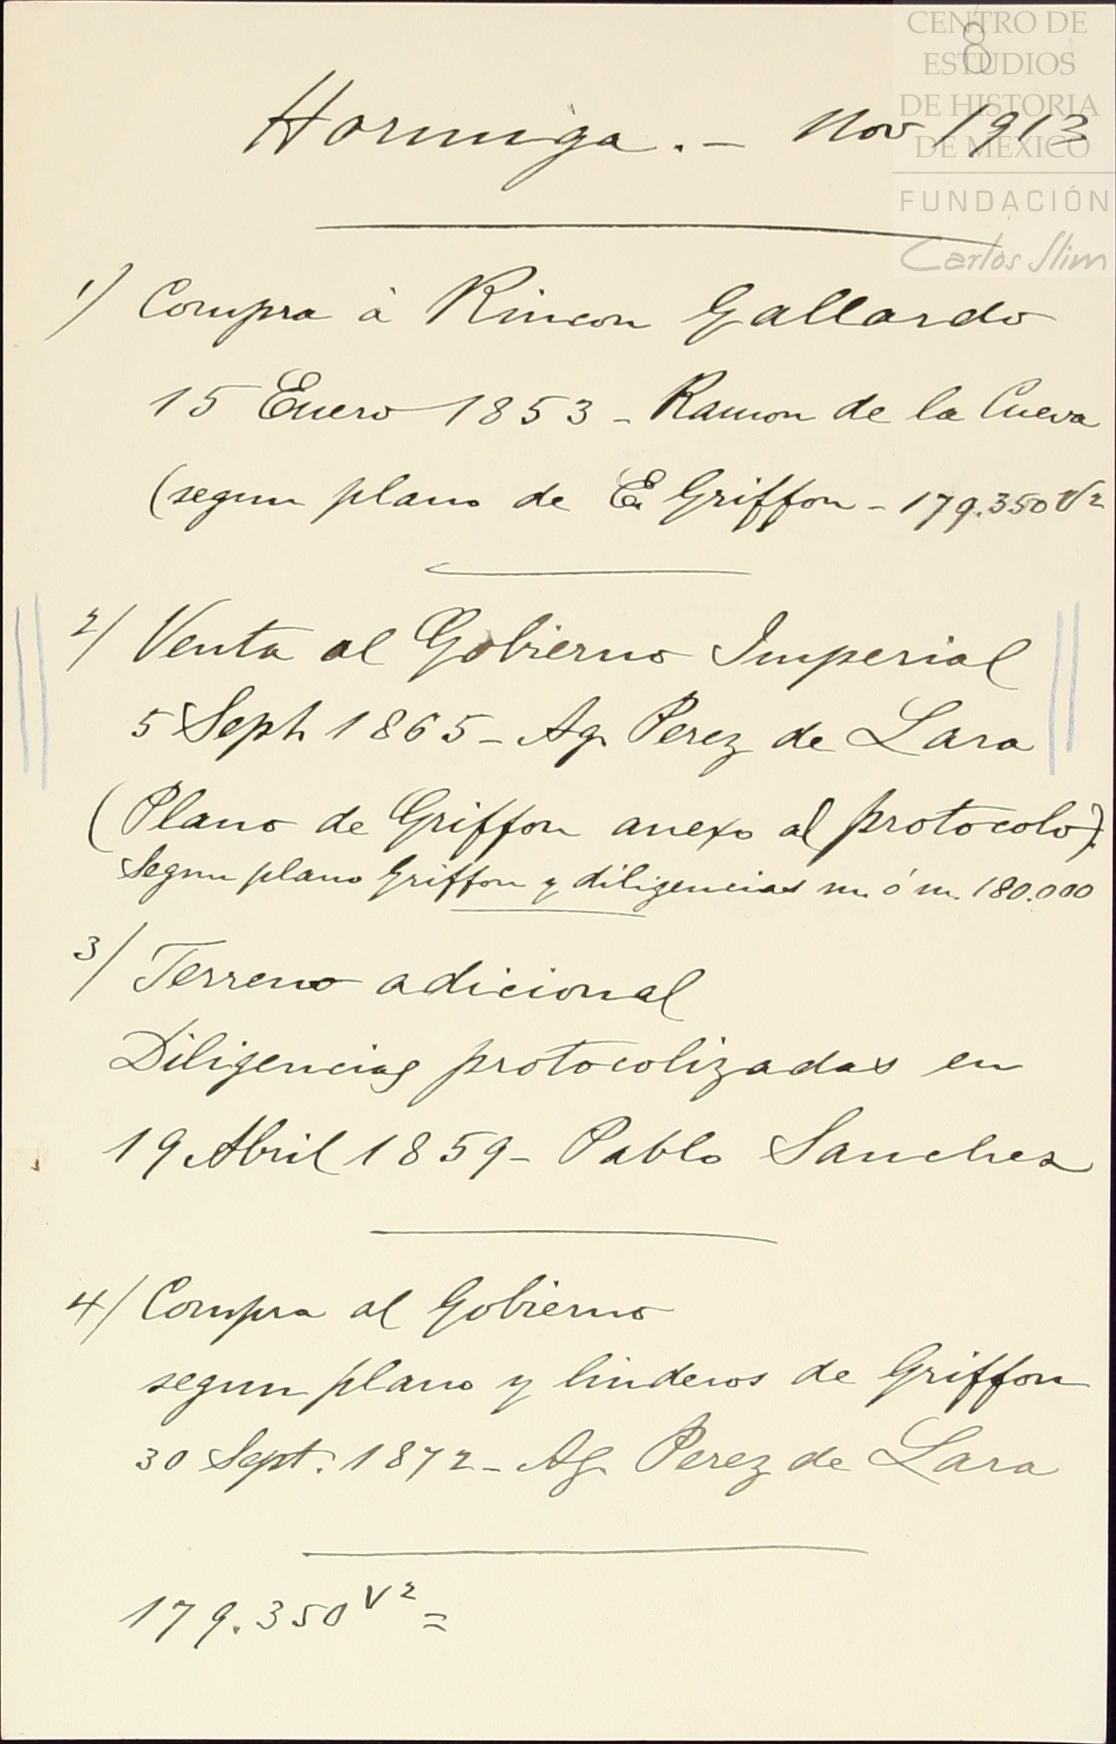 CENTRO DE
ESTUDIOS
DE HISTORIA
DE MEXICO
FUNDACIÓN
Carlos Slim
8
Hormiga. - Nov 1913
1/ Compra à Rincon Gallardo
15 Enero 1853 - Ramon de la Cueva
(segun plano de E. Griffon - 179.350 V2
2/ Venta al Gobierno Imperial
5 Sept. 1865 - Ag. Perez de Lara
(Plano de Griffon anexo al protocolo).
Segun plano Griffon y diligencias m. ó m. 180.000
3/ Terreno adicional
Diligencias protocolizadas en
19 Abril 1859 - Pablo Sanchez
4/ Compra al Gobierno
segun plano y linderos de Griffon
30 Sept. 1872 - Ag. Perez de Lara
179.350 V2 =